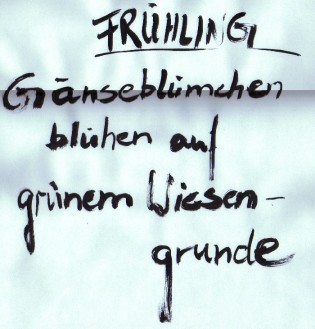 FRÜHLING
Gänseblümchen
blühen auf
grünem Wiesen-
grunde